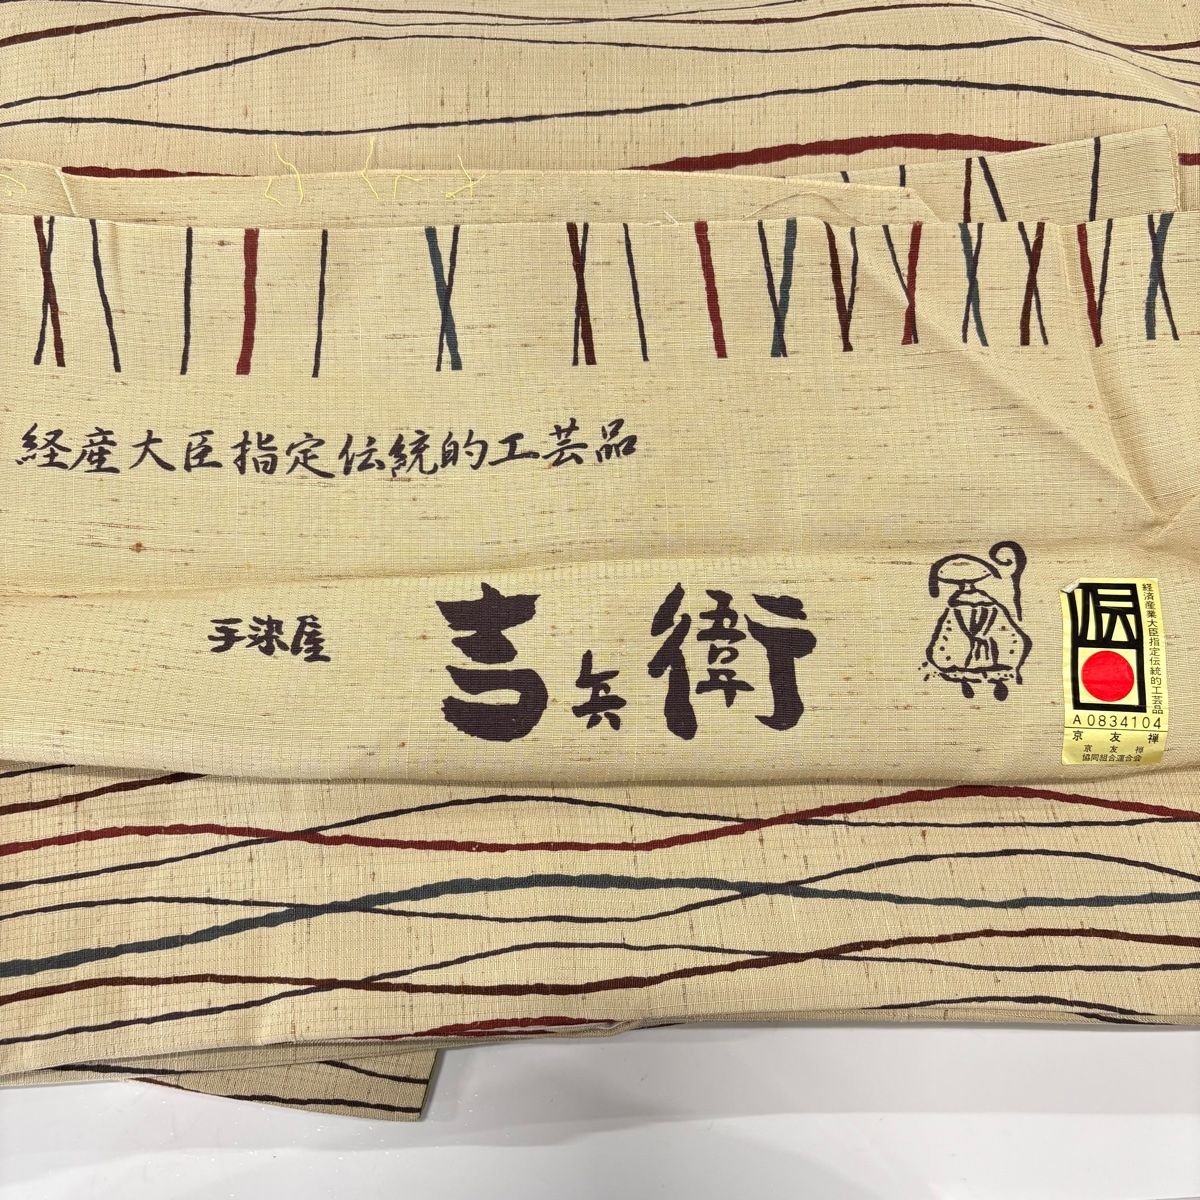 経産大臣指定伝統的工芸品
手染屋
吉兵衛
経済産業大臣指定伝統的工芸品
伝
A0834104
京友禅
京友禅
協同組合連合会